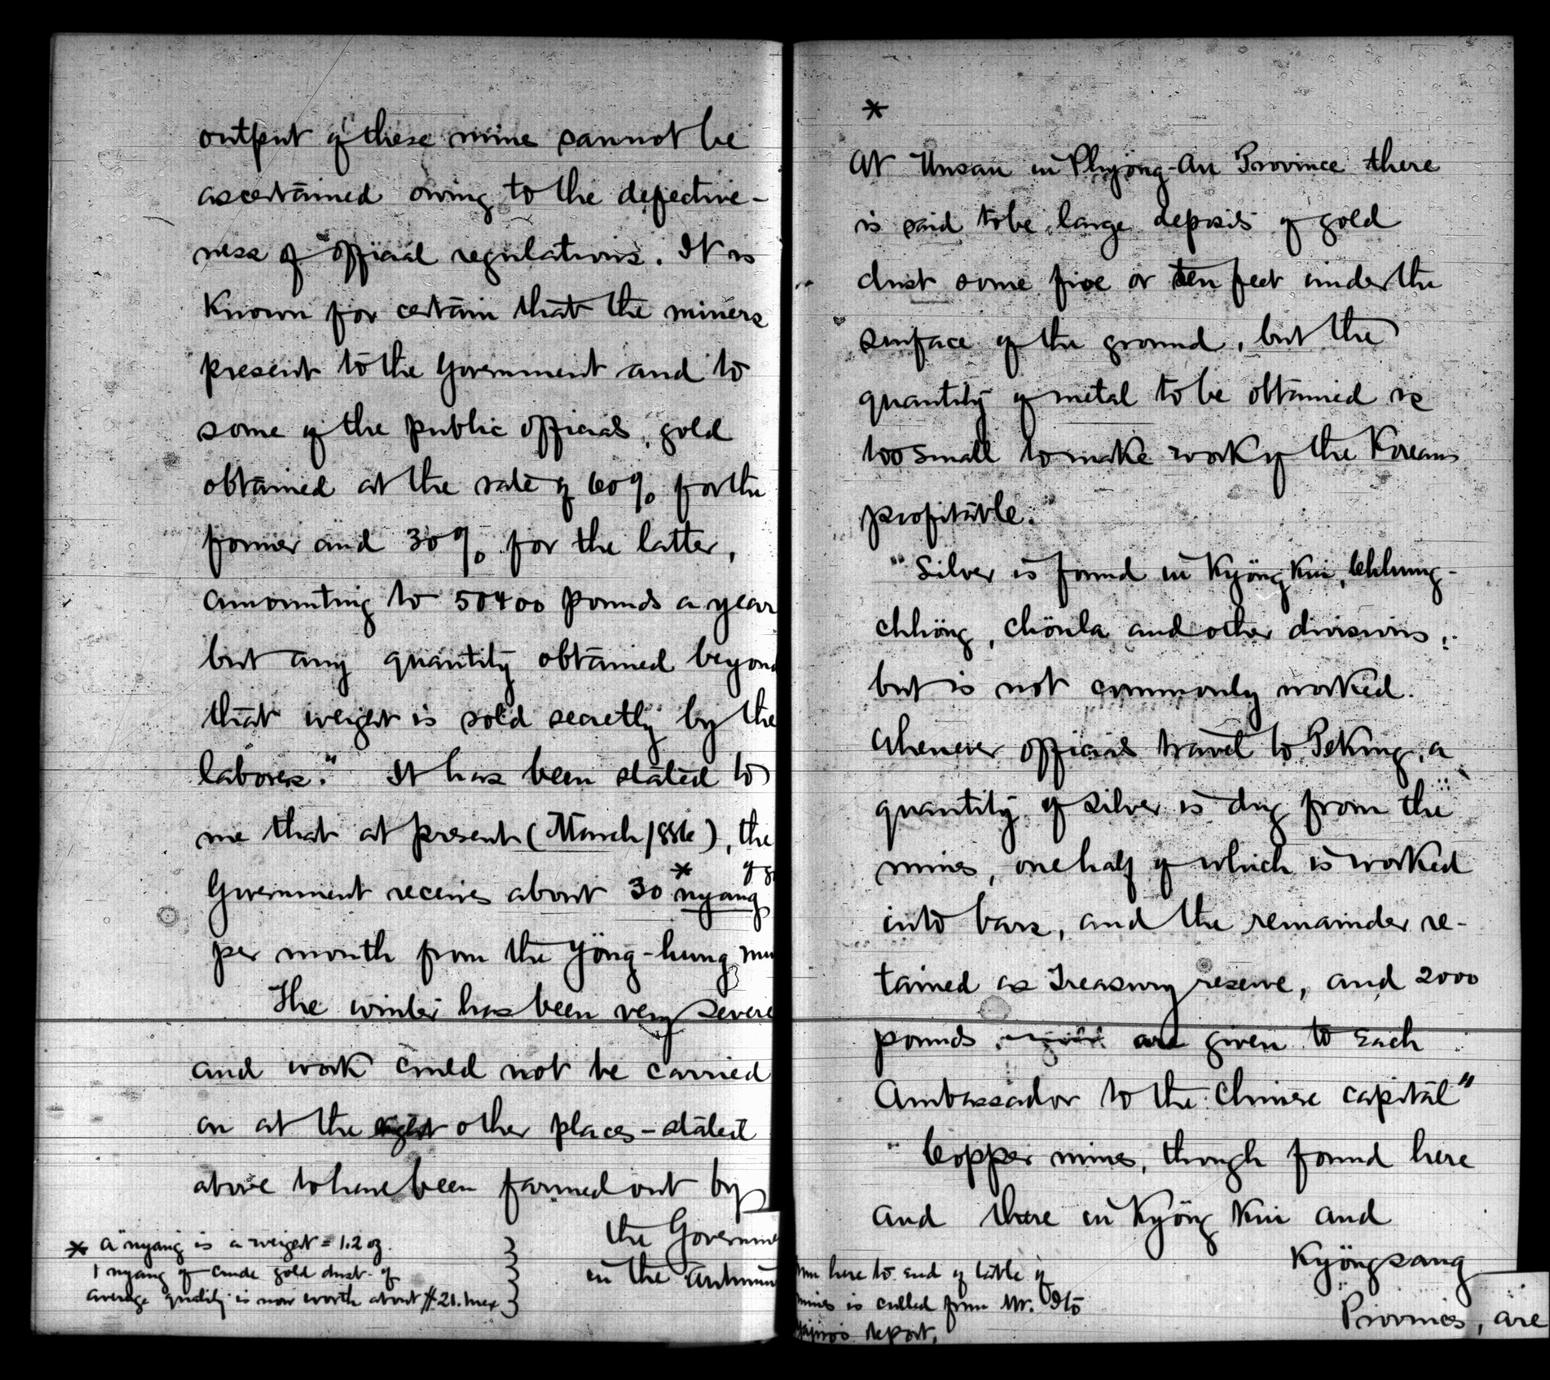 output of these mine cannot be
ascertained owing to the defective-
ness of official regulations. It is
Known for certain that the miners
present to the Government and to
some of the public officials, gold
obtained at the rate of 60% for the
former and 30% for the latter,
amounting to 50400 pounds a year
but any quantity obtained beyond
that weight is sold secretly by the
labores." It has been stated to
me that at present (March 1886), the
Government receives about 30 * nyang
per month from the Yöng-hung
The winter has been very severe
and work could not be carried
on at the other places - stated
above to have been farmed out by
the Governme
in the Autumn
* A "nyang is a weight = 1.2 oz.
1 nyang of crude gold dust of
average quality is now worth about $21. mex
*
At Unsan in Phyöng-An Province there
is said to be large deposits of gold
dust some five or ten feet under the
surface of the ground, but the
quantity of metal to be obtained is
too small to make work of the Koreans
profitable."
"Silver is found in Kyöng Kui, Chhung-
chhöng, chönla and other divisions,
but is not commonly worked.
Whenever officials travel to Peking, a
quantity of silver is dug from the
mines, one half of which is worked
into bars, and the remainder re-
tained as Treasury reserve, and 2000
pounds are given to Each
Ambassador to the Chinese capital"
"Copper mines, though found here
and there in Kyöng Kui and
Kyöngsang
Provinces, are
here to end of table of
mines is culled from Mr. Itō
report.